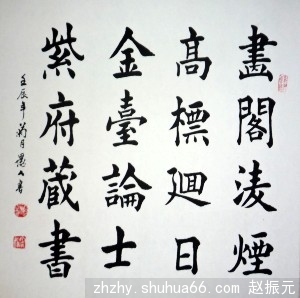 畫閣淩煙
高標廻日
金臺論士
紫府藏書
壬辰年菊月愚人書
zhzhy.shuhua66.com 赵振元